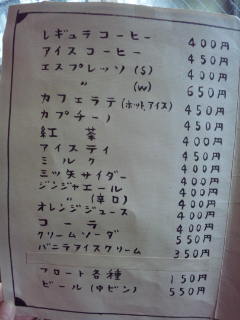 レギュラコーヒー 400円
アイスコーヒー 450円
エスプレッソ(S) 400円
〃 (W) 650円
カフェラテ(ホット、アイス) 450円
カプチーノ 450円
紅茶 400円
アイスティ 450円
ミルク 400円
三ツ矢サイダー 400円
ジンジャエール 400円
〃 (辛口) 400円
オレンジジュース 400円
コーラ 400円
クリームソーダ 550円
バニラアイスクリーム 350円
フロート各種 150円
ビール(中ビン) 550円